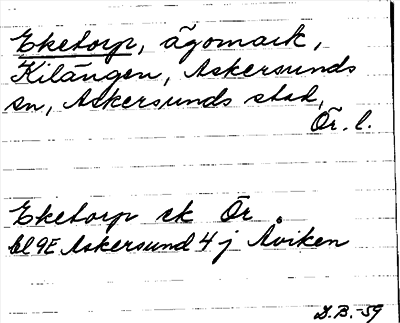 Eketorp, ägomark,
Kilängen, Askersunds
sn, Askersunds stad,
Ör. l.
Eketorp ek Ör.
bl 9E Askersund 4 j Åviken
D.B.-59